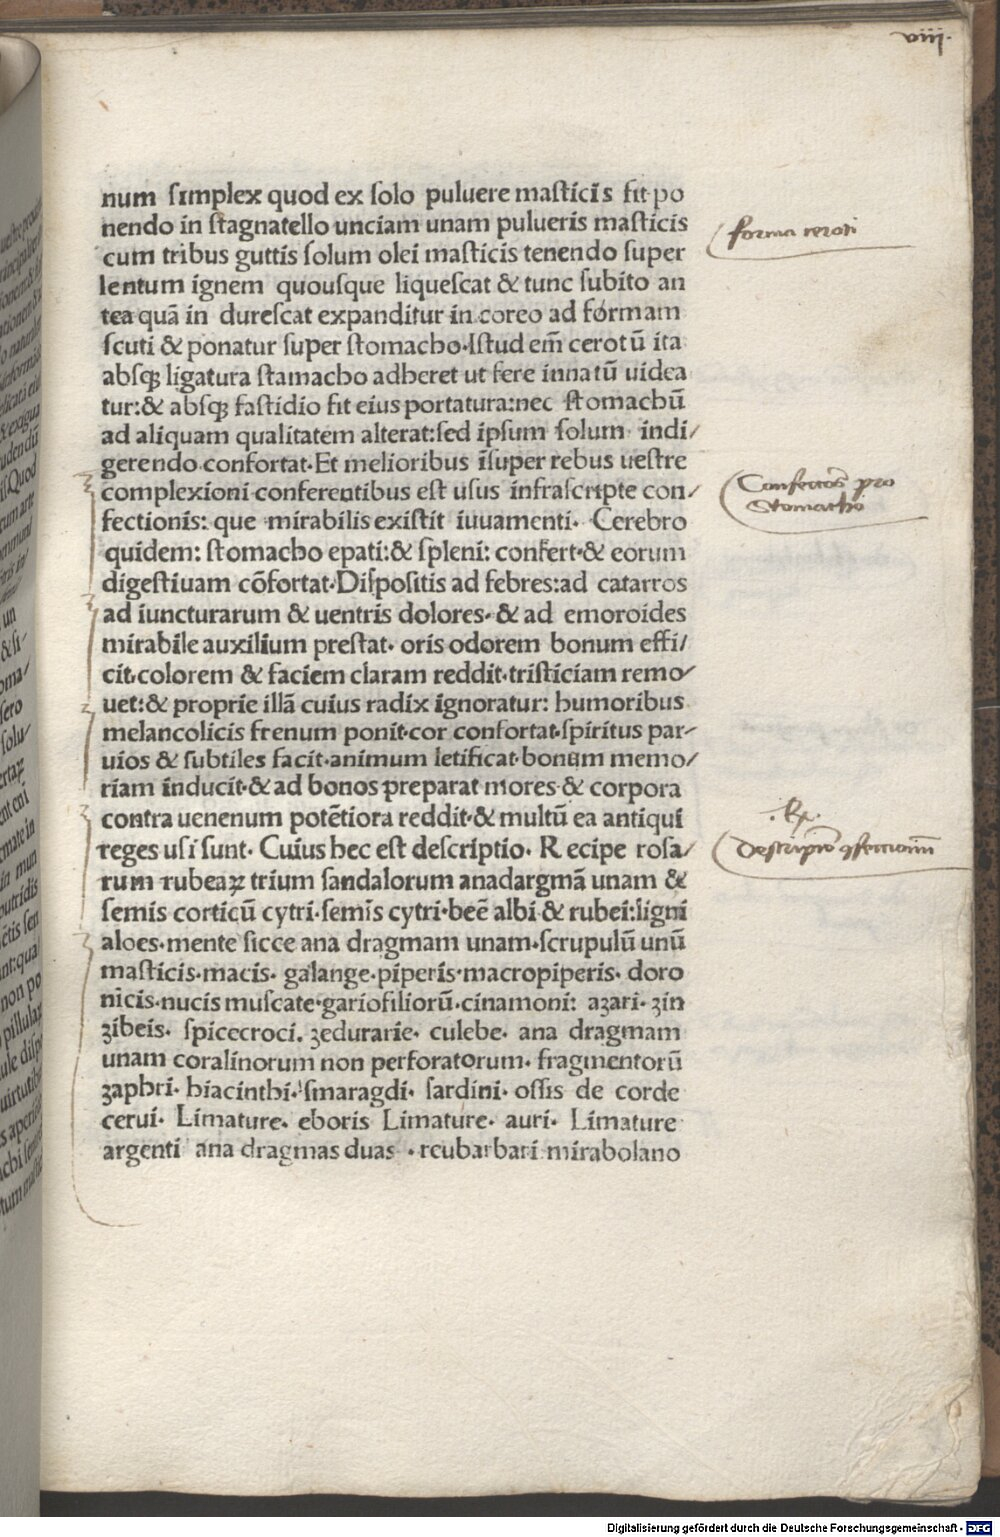 viii.
num simplex quod ex solo puluere masticis fit po
nendo in stagnatello unciam unam pulueris masticis
forma ceroti
cum tribus guttis solum olei masticis tenendo super
lentum ignem quousque liquescat & tunc subito an
tea quã in durescat expanditur in coreo ad formam
scuti & ponatur super stomacho·Istud em̃ cerotũ ita
absqꝫ ligatura stamacho adheret ut fere innatũ uidea
tur:& absqꝫ fastidio fit eius portatura:nec stomachũ
ad aliquam qualitatem alterat:sed ipsum solum indi/
gerendo confortat·Et melioribus ĩsuper rebus uestre
complexioni conferentibus est usus infrascripte con/
Confectio pro
Stomacho
fectionis: que mirabilis existit iuuamenti· Cerebro
quidem: stomacho epati:& spleni: confert·& eorum
digestiuam cõfortat·Dispositis ad febres:ad catarros
ad iuncturarum & uentris dolores·& ad emoroides
mirabile auxilium prestat· oris odorem bonum effi/
cit·colorem & faciem claram reddit·tristiciam remo/
uet:& proprie illã cuius radix ignoratur: humoribus
melancolicis frenum ponit·cor confortat·spiritus par/
uios & subtiles facit·animum letificat·bonum memo/
riam inducit·& ad bonos preparat mores·& corpora
contra uenenum potẽtiora reddit·& multũ ea antiqui
.Rx.
reges usi sunt· Cuius hec est descriptio· R ecipe rosa/
descriptio ꝯfectionum
rum rubeaꝝ trium sandalorum anadargmã unam &
semis corticũ cytri·semis cytri·beẽ albi & rubei:ligni
aloes·mente sicce ana dragmam unam·scrupulũ unũ
masticis·macis· galange·piperis·macropiperis· doro
nicis·nucis muscate·gariofiliorũ·cinamoni: aʒari· ʒin
ʒibeis· spicecroci. ʒedurarie· culebe· ana dragmam
unam coralinorum non perforatorum· fragmentorũ
ʒaphri· hiacinthi·smaragdi· sardini· ossis de corde
cerui· Limature· eboris Limature· auri· Limature
argenti ana dragmas duas ·reubarbari mirabolano
Digitalisierung gefördert durch die Deutsche Forschungsgemeinschaft - DFG